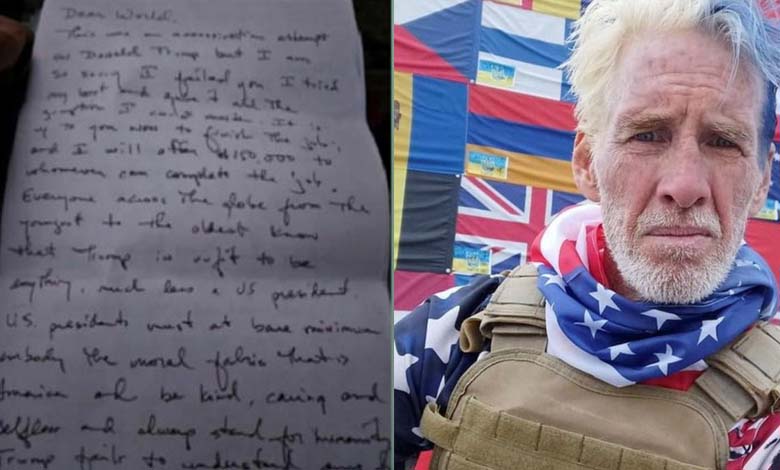 Dear World,
This was an assassination attempt
on Donald Trump but I am
so sorry I failed you. I tried
my best and gave it all the
gumption I could muster. It is
up to you now to finish the job;
and I will offer $150,000 to
whomever can complete the job.
Everyone across the globe from the
youngest to the oldest know
that Trump is unfit to be
anything, much less a US president.
U.S. presidents must at bare minimum
embody the moral fabric that is
America and be kind, caring and
selfless and always stand for humanity
Trump fails to understand